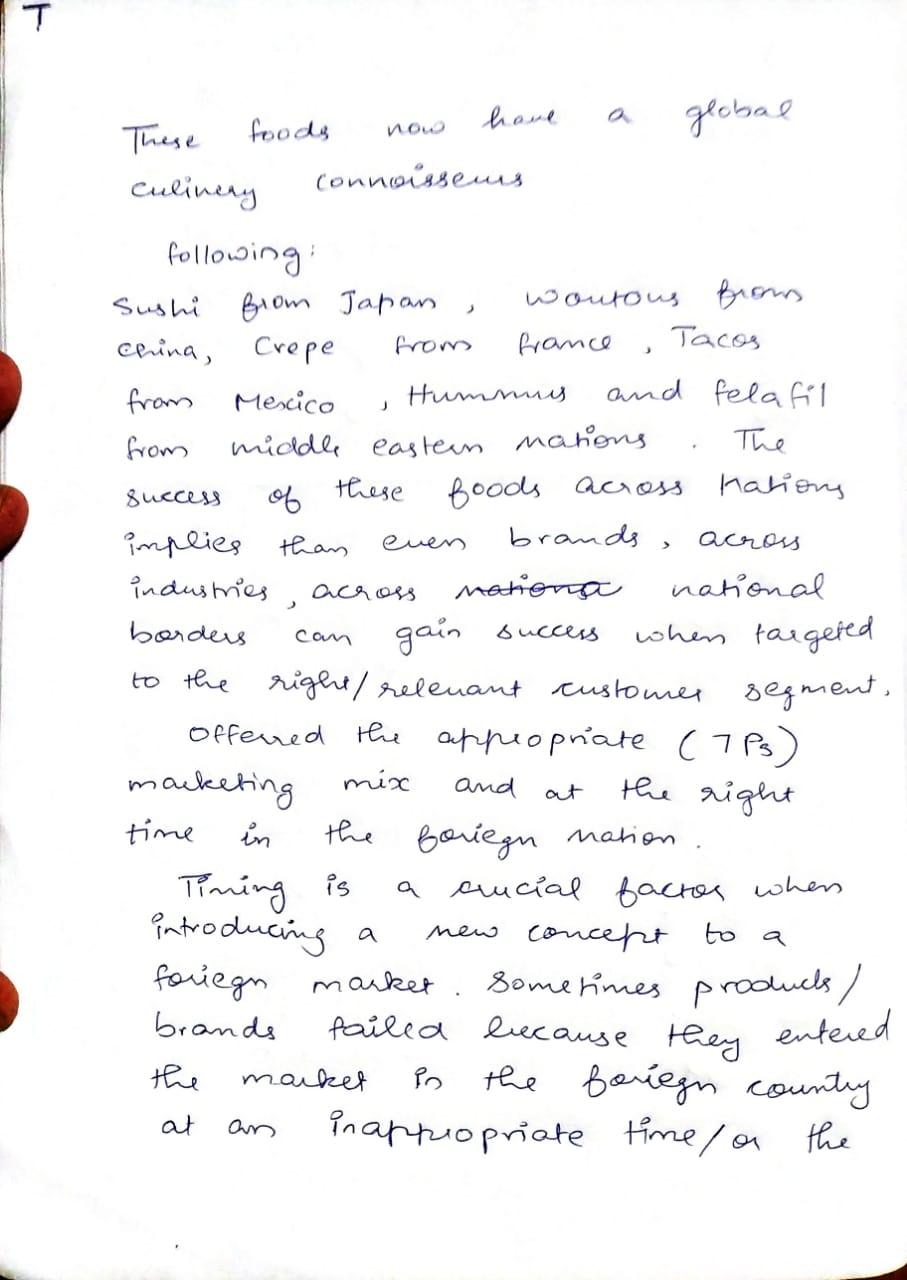 T
These foods now have a global
culinery connoisseurs
following:
Sushi from Japan, woutous from
China, Crepe from france, Tacos
from Mexico, Hummus and felafil
from middle eastern nations. The
success of these foods across nations
implies than even brands, across
industries, across nationa national
borders can gain success when targeted
to the right/relevant customer segment.
Offered the appropriate (7Ps)
marketing mix and at the right
time in the foriegn nation.
Timing is a crucial factor when
introducing a new concept to a
foriegn market. Sometimes products/
brands failed because they entered
the market in the foriegn country
at an inappropriate time/or the